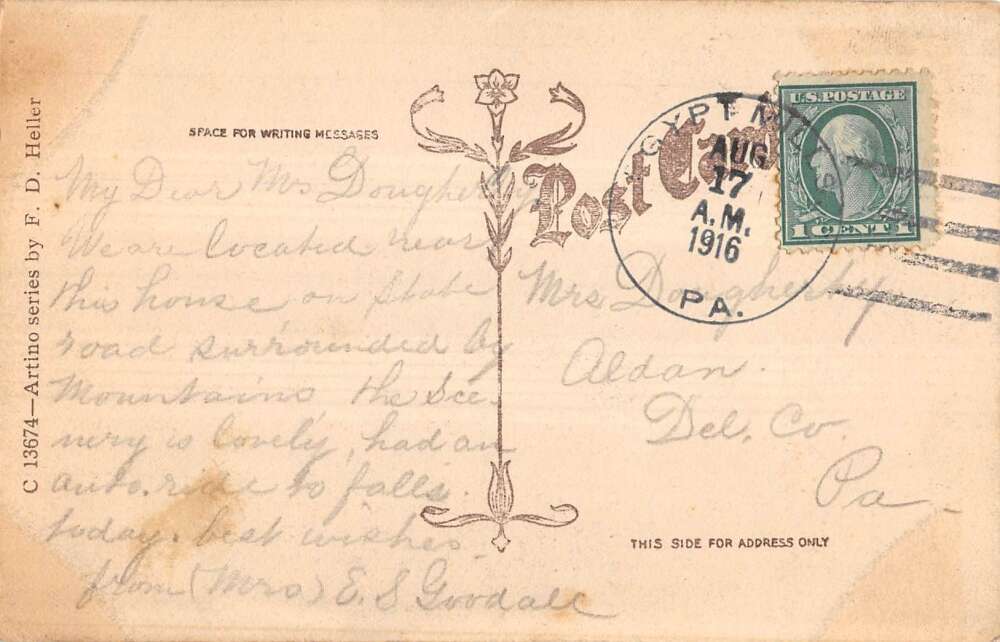 C 13674—Artino series by F. D. Heller
SPACE FOR WRITING MESSAGES
Post Card
My Dear Mrs Dougherty
We are Located near
this house on State
road surrounded by
Mountains the Sce-
nery is lovely, had an
auto. ride to falls.
today. best wishes.
from (Mrs) E. S Goodall
GYPT MIL
AUG
17
A.M.
1916
PA.
U.S. POSTAGE
1 CENT 1
Mrs Dougherty
Aldan.
Del. Co.
Pa
THIS SIDE FOR ADDRESS ONLY